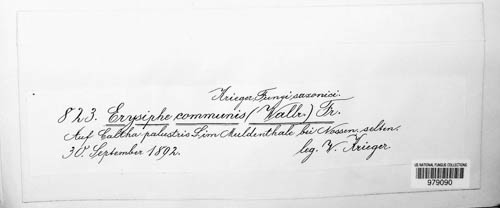 Krieger, Fungi saxonici.
823. Erysiphe communis (Wallr.) Fr.
Auf Caltha palustris L. im Muldenthale bei Nossen, selten.
30. September 1892. leg. W. Krieger.
US NATIONAL FUNGUS COLLECTIONS
979090